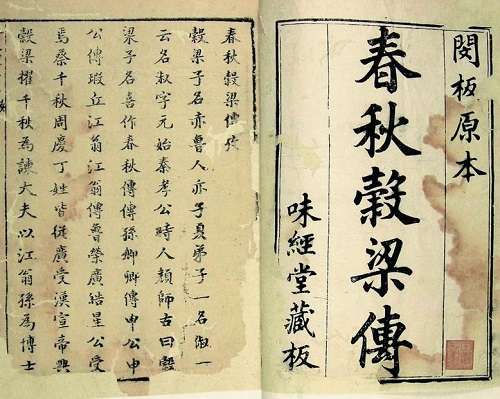 閔板原本
春秋穀梁傳
味經堂藏板
春秋穀梁傳攷
穀梁子名赤魯人亦子夏弟子一名俶一
云名淑字元始秦孝公時人顏師古曰穀
梁子名喜作春秋傳傳孫卿卿傳申公申
公傳瑕丘江翁江翁傳魯榮廣皓星公受
焉蔡千秋周慶丁姓皆從廣受漢宣帝興
穀梁擢千秋為諫大夫以江翁孫為博士